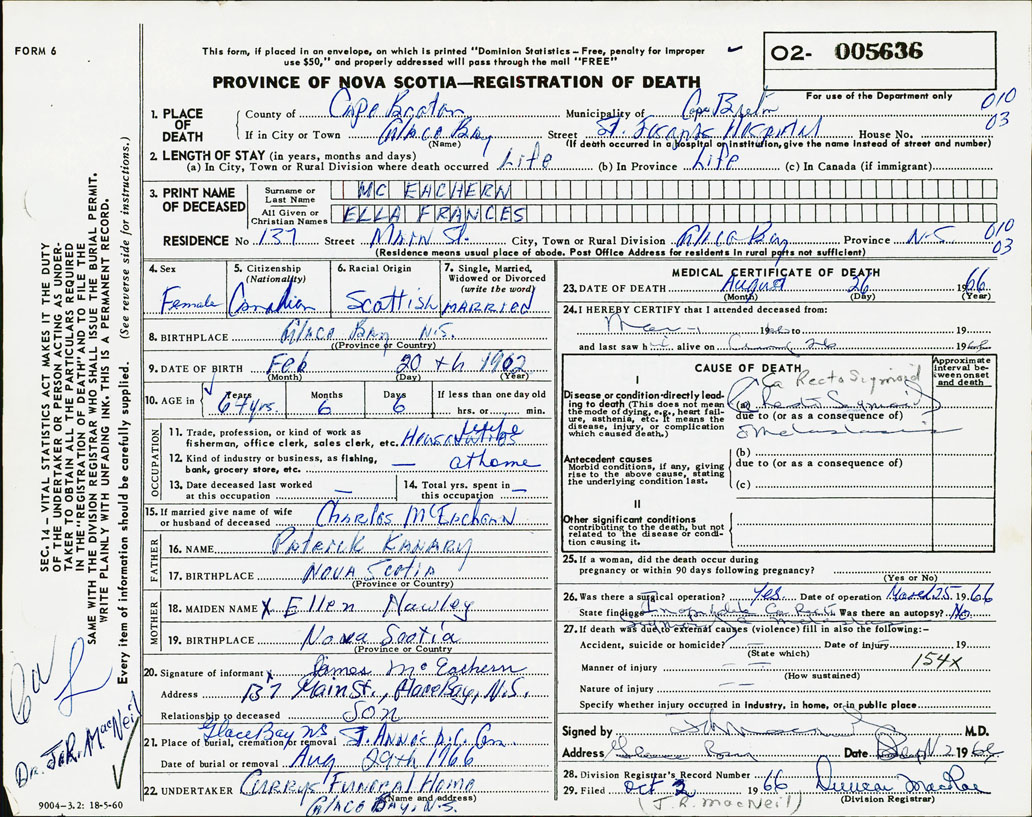 FORM 6
This form, if placed in an envelope, on which is printed "Dominion Statistics – Free, penalty for improper
use $50," and properly addressed will pass through the mail "FREE"
O2- 005636
PROVINCE OF NOVA SCOTIA—REGISTRATION OF DEATH
For use of the Department only
010
03
1. PLACE OF DEATH
County of Cape Breton Municipality of Cape Breton
If in City or Town Glace Bay Street St. Josephs Hospital House No.
(Name) (If death occurred in a hospital or institution, give the name instead of street and number)
2. LENGTH OF STAY (in years, months and days)
(a) In City, Town or Rural Division where death occurred Life (b) In Province Life (c) In Canada (if immigrant)
3. PRINT NAME OF DECEASED
Surname or Last Name MC EACHERN
All Given or Christian Names ELLA FRANCES
RESIDENCE No 137 Street Main St. City, Town or Rural Division Glace Bay Province N-S. 010
03
(Residence means usual place of abode. Post Office Address for residents in rural parts not sufficient)
4. Sex Female
5. Citizenship (Nationality) Canadian
6. Racial Origin Scottish
7. Single, Married, Widowed or Divorced (write the word) MARRIED
8. BIRTHPLACE Glace Bay N.S.
(Province or Country)
9. DATE OF BIRTH Feb 20th 1902
(Month) (Day) (Year)
10. AGE in Years 64 yrs. Months 6 Days 6 If less than one day old hrs. or min.
OCCUPATION
11. Trade, profession, or kind of work as
fisherman, office clerk, sales clerk, etc. Housewife
12. Kind of industry or business, as fishing,
bank, grocery store, etc. — at home
13. Date deceased last worked at this occupation —
14. Total yrs. spent in this occupation —
15. If married give name of wife
or husband of deceased Charles McEachern
FATHER
16. NAME Patrick Kanary
17. BIRTHPLACE Nova Scotia
(Province or Country)
MOTHER
18. MAIDEN NAME X Ellen Nawley
19. BIRTHPLACE Nova Scotia
(Province or Country)
20. Signature of informant x James McEachern
Address 137 Main St., Glace Bay, N.S.
Relationship to deceased Son
Glace Bay NS
21. Place of burial, cremation or removal St. Anne's R.C. Cem.
Date of burial or removal Aug 29th 1966
22. UNDERTAKER Currys Funeral Home
(Name and address)
Glace Bay, N.S.
MEDICAL CERTIFICATE OF DEATH
23. DATE OF DEATH August 26 1966
(Month) (Day) (Year)
24. I HEREBY CERTIFY that I attended deceased from:
1966 to 19
and last saw h alive on 26 1966
CAUSE OF DEATH
Approximate interval between onset and death
I
Disease or condition directly leading to death (This does not mean
the mode of dying, e.g., heart failure, asthenia, etc. It means the
disease, injury, or complication
which caused death.)
Ca Recto Sigmoid
(a) Recto Sigmoid
due to (or as a consequence of)
metastasis
Antecedent causes
Morbid conditions, if any, giving
rise to the above cause, stating
the underlying condition last.
(b)
due to (or as a consequence of)
(c)
II
Other significant conditions
contributing to the death, but not
related to the disease or condition causing it.
25. If a woman, did the death occur during
pregnancy or within 90 days following pregnancy?
(Yes or No)
26. Was there a surgical operation? Yes Date of operation March 25 1966
State findings Inoperable Ca Was there an autopsy? No
27. If death was due to external causes (violence) fill in also the following:–
Accident, suicide or homicide? Date of injury 19
(State which)
Manner of injury — — 154X
(How sustained)
Nature of injury — —
Specify whether injury occurred in industry, in home, or in public place
Signed by M.D.
Address Glace Bay Date Sept 2 1966
28. Division Registrar's Record Number
29. Filed Oct 2 1966 Duncan MacRae
(J. R. MacNeil) (Division Registrar)
SEC. 14 – VITAL STATISTICS ACT MAKES IT THE DUTY
OF THE UNDERTAKER OR PERSON ACTING AS UNDER-
TAKER TO OBTAIN ALL THE PARTICULARS REQUIRED
IN THE "REGISTRATION OF DEATH" AND TO FILE THE
SAME WITH THE DIVISION REGISTRAR WHO SHALL ISSUE THE BURIAL PERMIT.
WRITE PLAINLY WITH UNFADING INK. THIS IS A PERMANENT RECORD.
Every item of information should be carefully supplied. (See reverse side for instructions.)
Dr. J.R. MacNeil
9004-3.2: 18-5-60